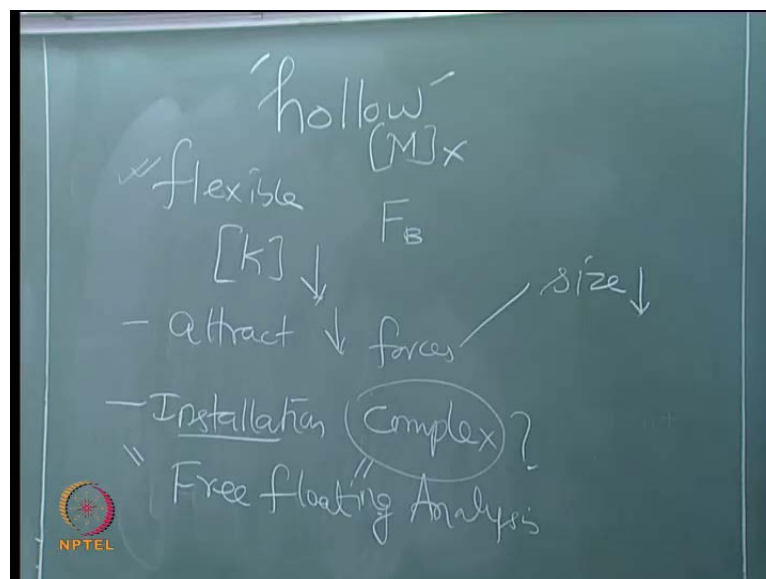 "hollow"
[M]x
flexible
F_B
[K] ↓
size ↓
- attract ↓ forces
- Installation (Complex) ?
" Free floating Analysis
NPTEL